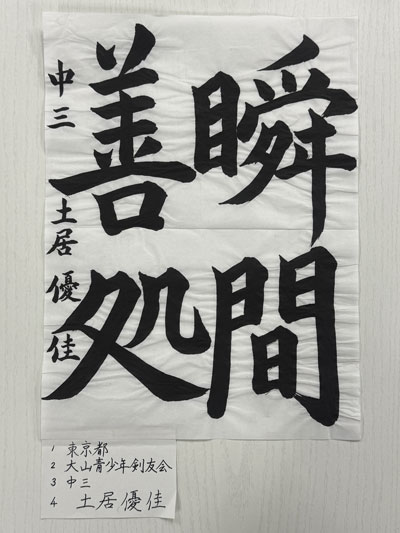 瞬間
善処
中三 土居優佳
1 東京都
2 大山青少年剣友会
3 中三
4 土居優佳